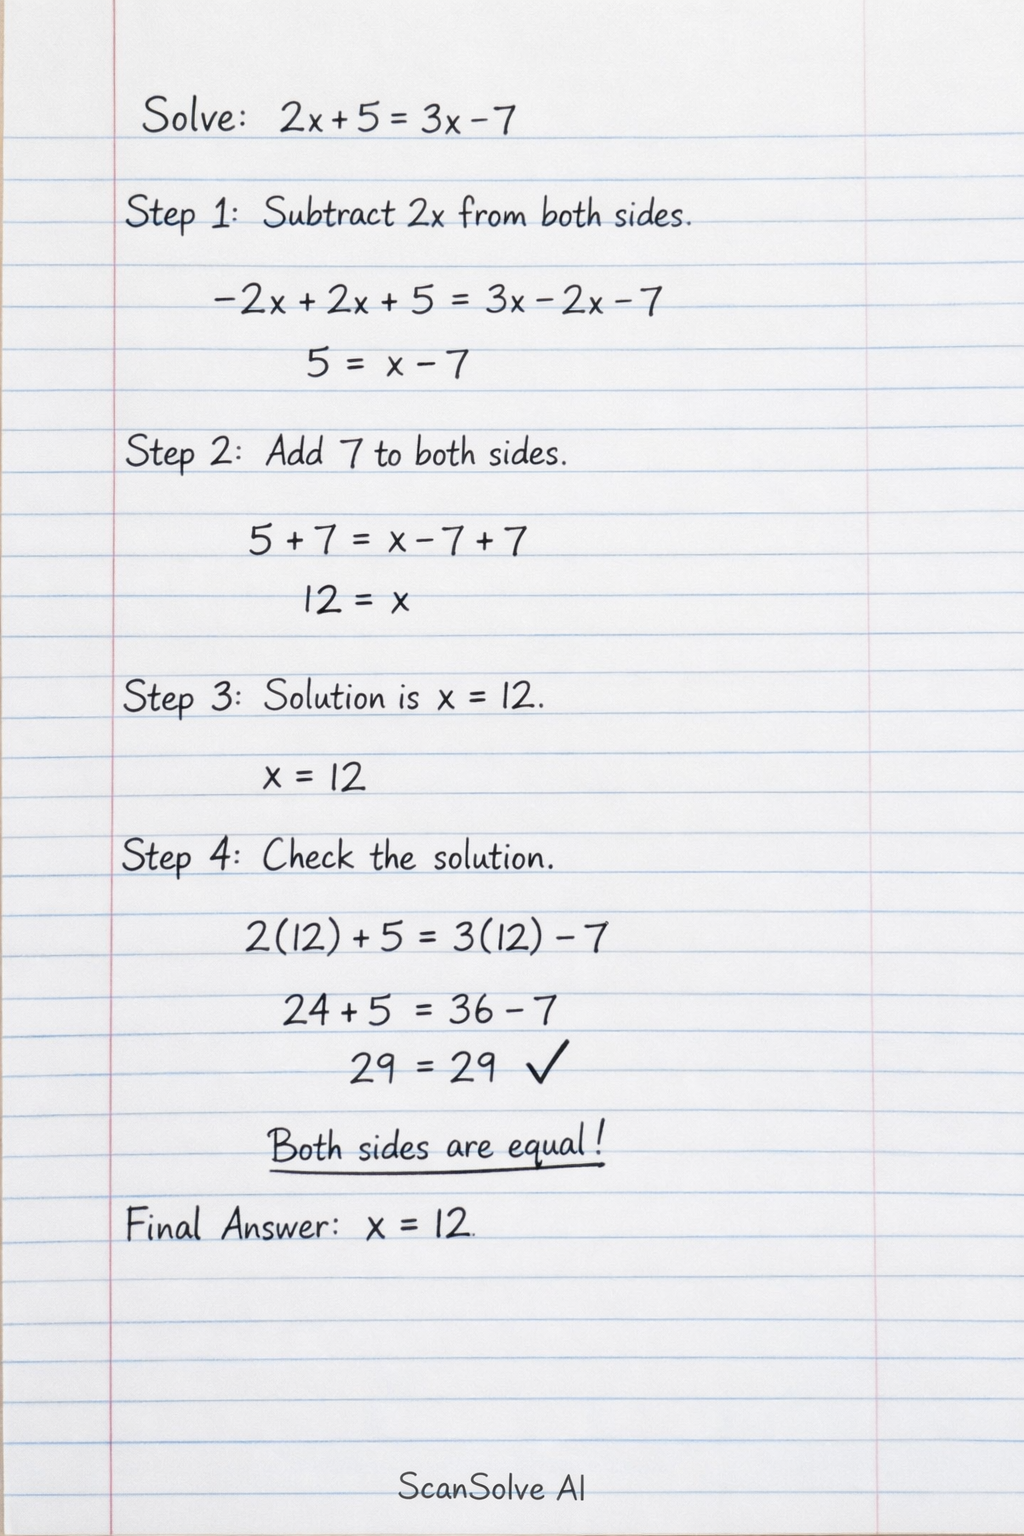 Solve: 2x + 5 = 3x - 7
Step 1: Subtract 2x from both sides.
-2x + 2x + 5 = 3x - 2x - 7
5 = x - 7
Step 2: Add 7 to both sides.
5 + 7 = x - 7 + 7
12 = x
Step 3: Solution is x = 12.
x = 12
Step 4: Check the solution.
2(12) + 5 = 3(12) - 7
24 + 5 = 36 - 7
29 = 29 ✓
Both sides are equal!
Final Answer: x = 12.
ScanSolve AI